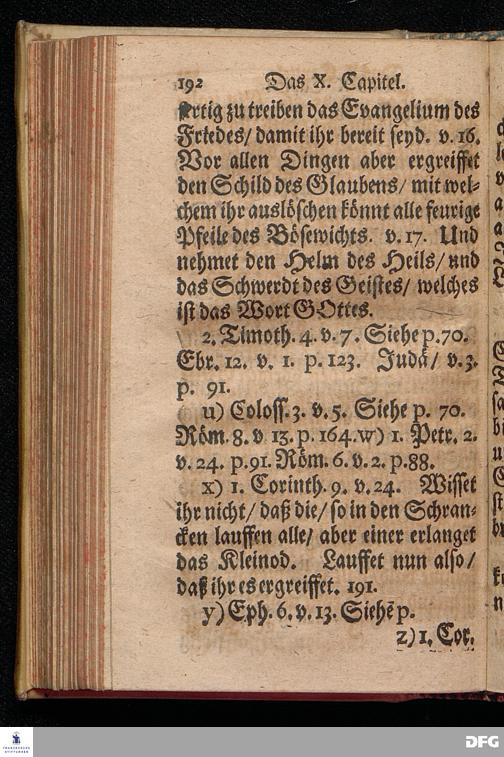 192 Das X. Capitel.
fertig zu treiben das Evangelium des
Friedes/ damit ihr bereit seyd. v. 16.
Vor allen Dingen aber ergreiffet
den Schild des Glaubens/ mit wel-
chem ihr auslöschen könnt alle feurige
Pfeile des Bösewichts. v. 17. Und
nehmet den Helm des Heils/ und
das Schwerdt des Geistes/ welches
ist das Wort GOttes.
2. Timoth. 4. v. 7. Siehe p. 70.
Ebr. 12. v. 1. p. 123. Judä/ v. 3.
p. 91.
u) Coloss. 3. v. 5. Siehe p. 70.
Röm. 8. v 13. p. 164. w) 1. Petr. 2.
v. 24. p. 91. Röm. 6. v. 2. p. 88.
x) 1. Corinth. 9. v. 24. Wisset
ihr nicht/ daß die/ so in den Schran-
cken lauffen alle/ aber einer erlanget
das Kleinod. Lauffet nun also/
daß ihr es ergreiffet. 191.
y) Eph. 6. v. 13. Siehe p.
z) 1. Cor.
FRANCKESCHE
STIFTUNGEN
DFG